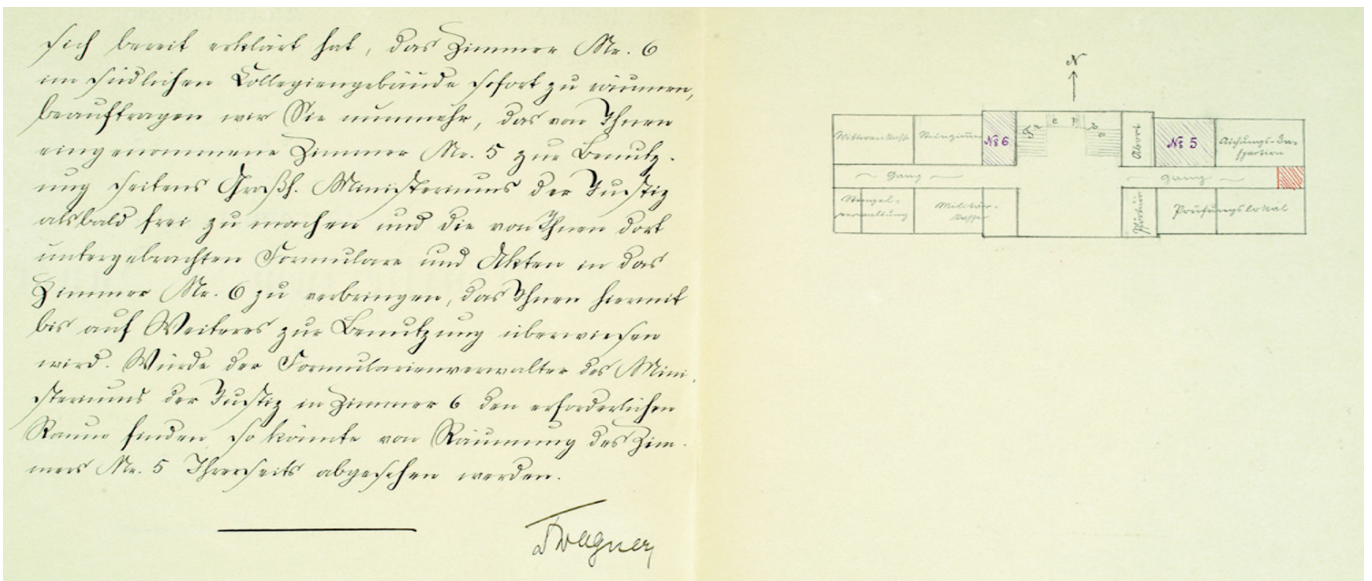 sich bereit erklärt hat, das Zimmer Nr. 6
im südlichen Kollegiengebäude sofort zu räumen,
beauftragen wir Sie nunmehr, das von Ihnen
eingenommene Zimmer Nr. 5 zur Benutz-
ung seitens Großh. Ministeriums der Justiz
alsbald frei zu machen und die von Ihnen dort
untergebrachten Formulare und Akten in das
Zimmer Nr. 6 zu verbringen, das Ihnen hiermit
bis auf Weiteres zur Benutzung überwiesen
wird. Würde der Formularienverwalter des Mini-
steriums der Justiz in Zimmer 6 den erforderlichen
Raum finden, so könnte von Räumung des Zim-
mers Nr. 5 Ihrerseits abgesehen werden.
Wagner
N
Treppe
Nº 6
Abort
Nº 5
Gang
Gang
Militär-
Kasse
Prüfungslokal